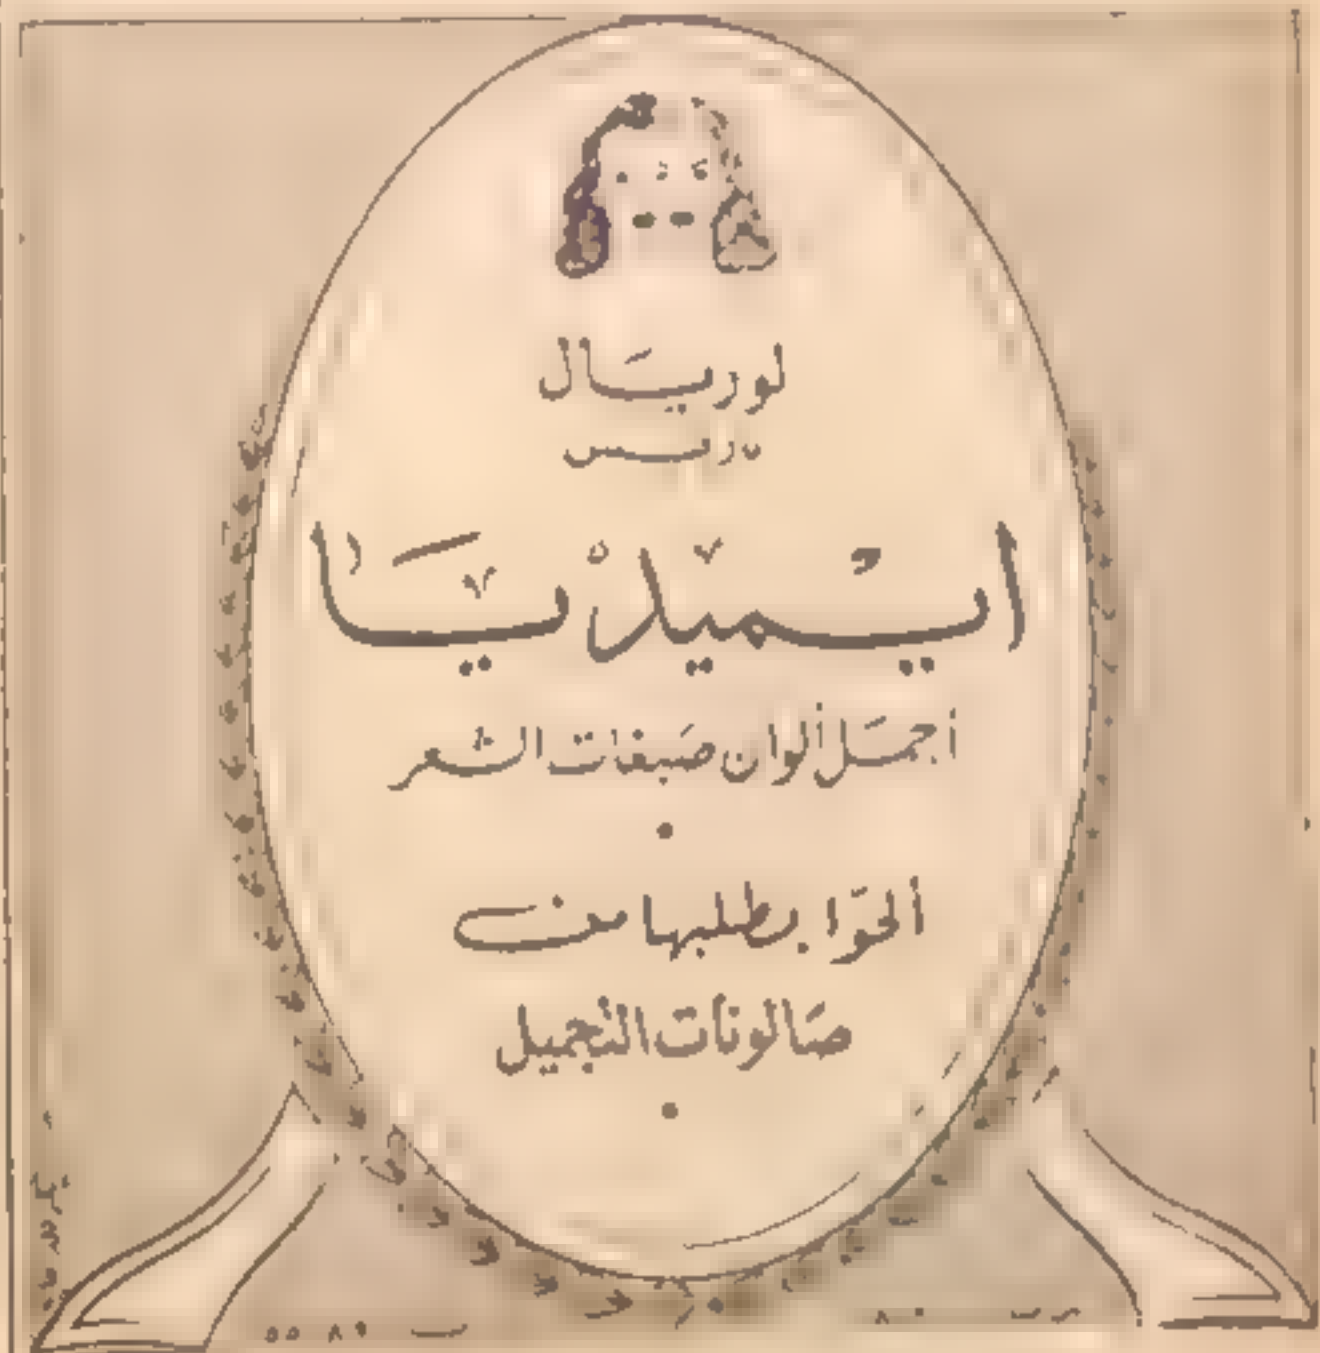 لوريَال
باريس
ايميديَا
أجمَل ألوان صَبغات الشعر
ألحوّا بطلبها من
صَالونات التجميل